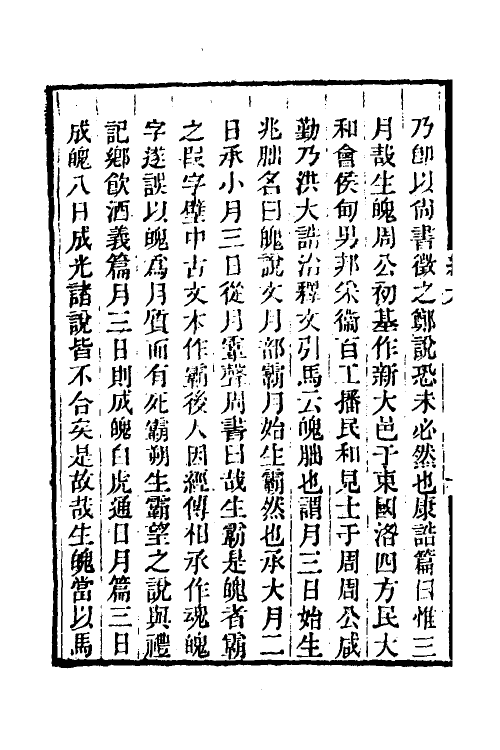 乃卽以尙書徵之鄭說恐未必然也康誥篇曰惟三
月哉生魄周公初基作新大邑于東國洛四方民大
和會侯甸男邦采衞百工播民和見士于周周公咸
勤乃洪大誥治釋文引馬云魄朏也謂月三日始生
兆朏名曰魄說文月部霸月始生霸然也承大月二
日承小月三日從月䨣聲周書曰哉生霸是魄者霸
之叚字壁中古文本作霸後人因經傳相承作魂魄
字遂誤以魄爲月質而有死霸朔生霸望之說與禮
記鄉飮酒義篇月三日則成魄白虎通日月篇三日
成魄八日成光諸說皆不合矣是故哉生魄當以馬